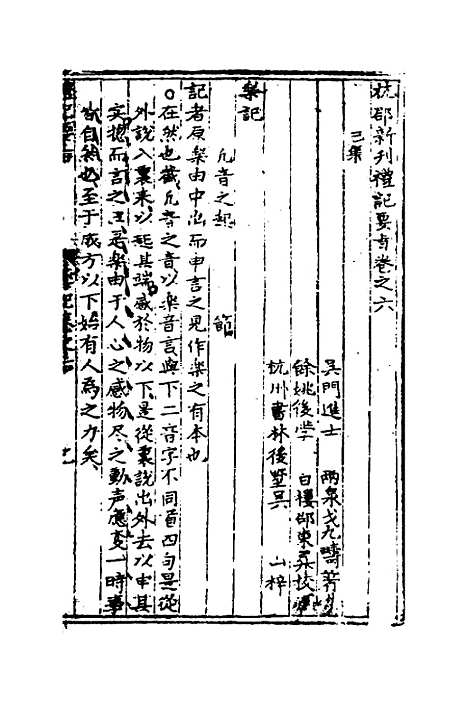 杭郡新刊禮記要旨卷之六
三集
吴門進士 兩泉戈九疇著
餘姚後學 白樓邵東
杭州書林後墅吴 山梓
樂記
凡音之起 節
記者原樂由中出而申言之見作樂之有本也
○在然也截凡音之音以樂音言與下二音字不同首四句是從
外說入裏來以起其端感於物以下是從裏說出外去以申其
实摠而言之正是樂由于人心之感物尽之動声應变一時事
皆自然也至于成方以下始有人為之力矣